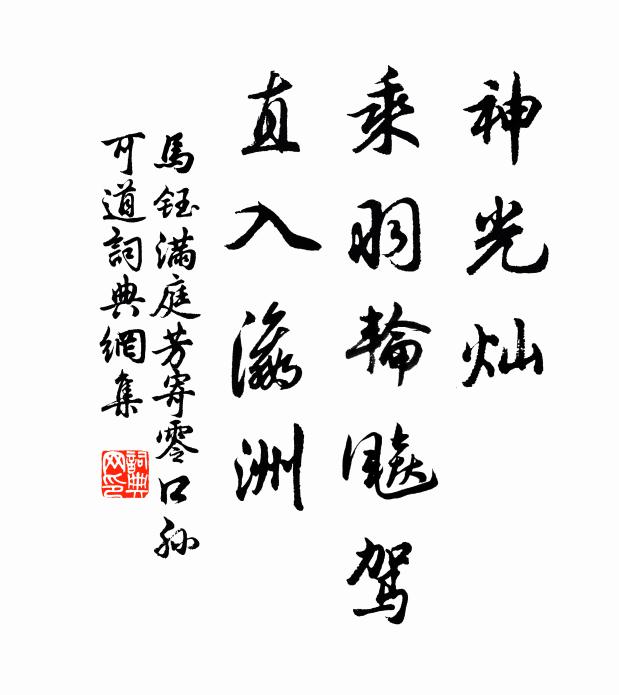 神光灿
乘羽輪飚駕
直入瀛洲
馬鈺滿庭芳寄零口孙
可道詞典網集
詞典
网印